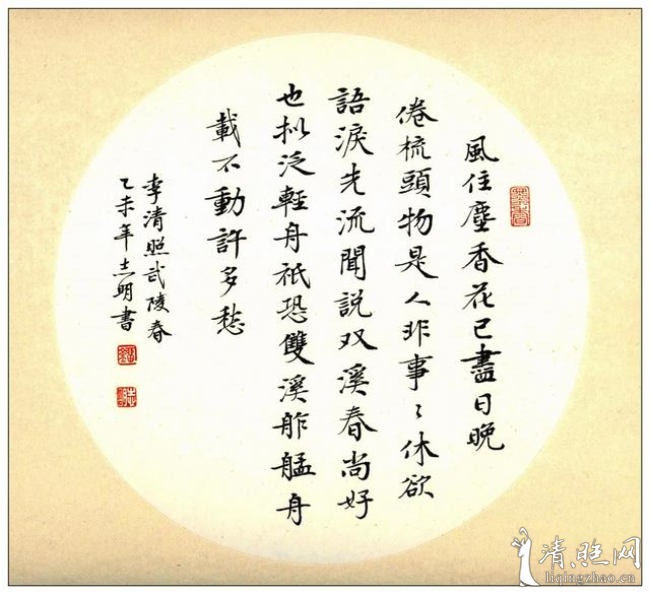 風住塵香花已盡日晚
倦梳頭物是人非事〻休欲
語淚先流聞說双溪春尚好
也拟泛軽舟祇恐雙溪舴艋舟
載不動許多愁
李清照武陵春
乙未年志明書
清照网
liqingzhao.cn